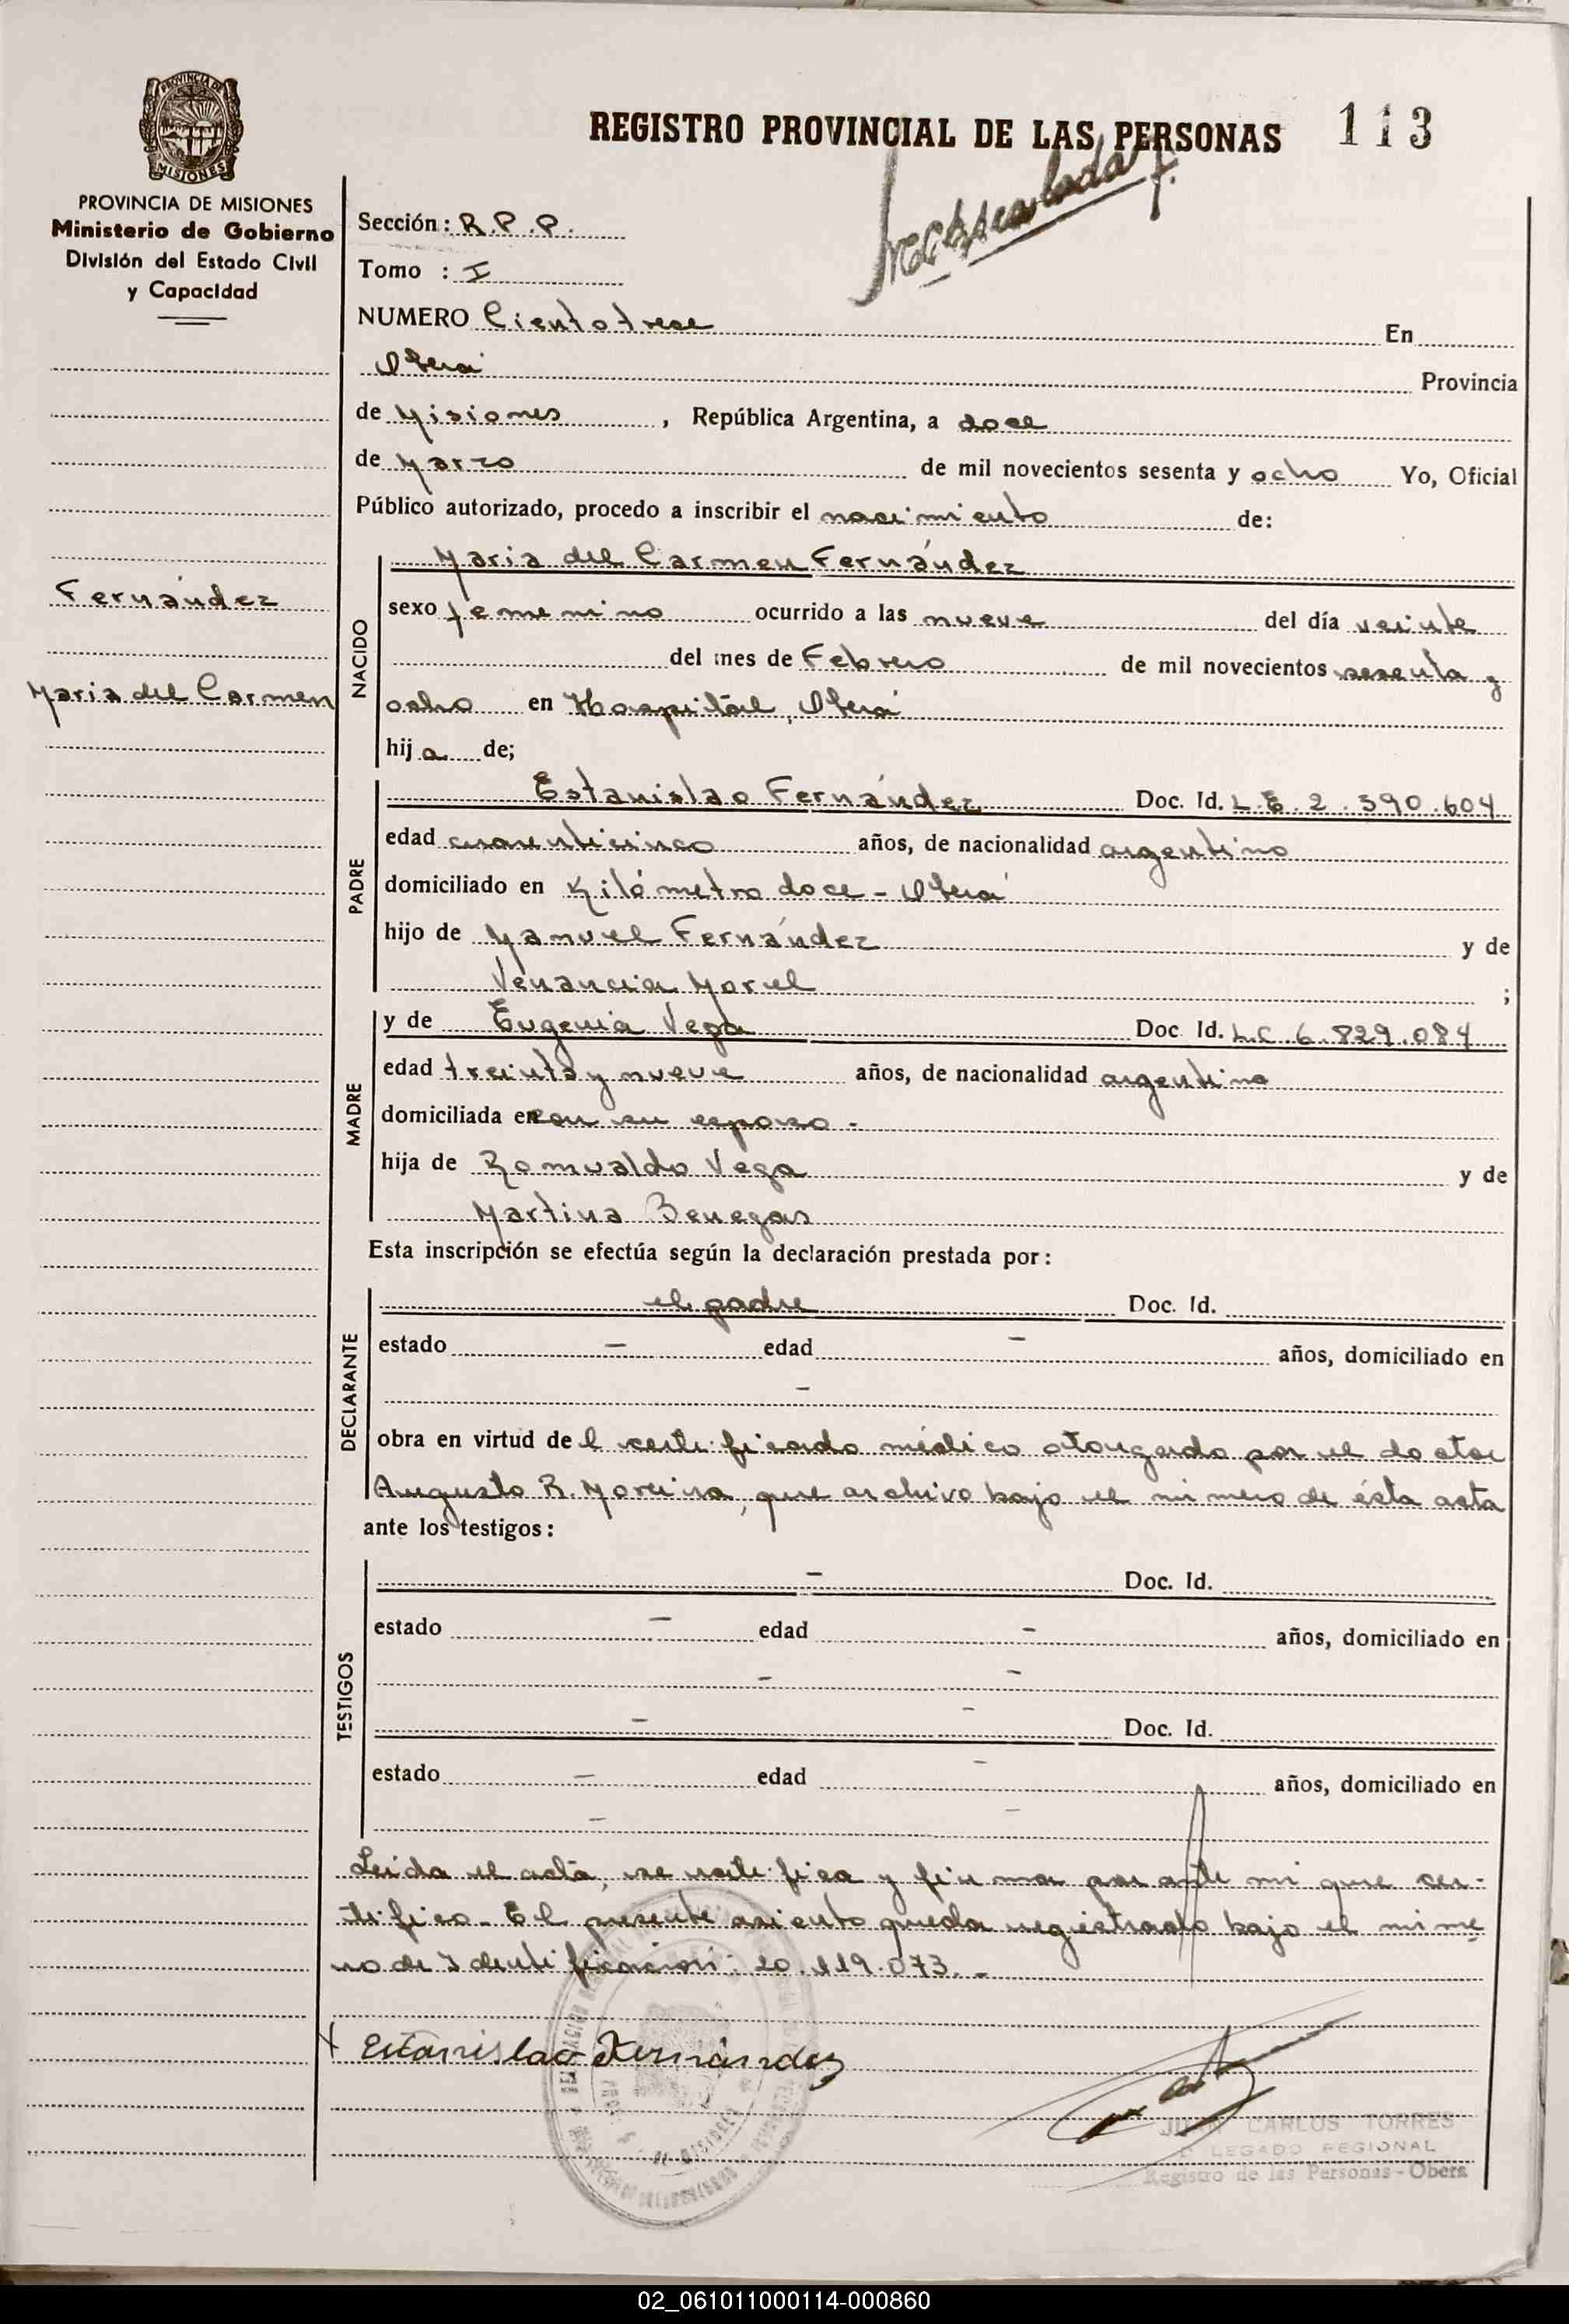 PROVINCIA DE
MISIONES
PROVINCIA DE MISIONES
Ministerio de Gobierno
División del Estado Civil
y Capacidad
Fernández
María del Carmen
REGISTRO PROVINCIAL DE LAS PERSONAS 113
Sección: R.P.P.
Tomo : I
NUMERO Ciento trece En
Oberá Provincia
de Misiones, República Argentina, a doce
de Marzo de mil novecientos sesenta y ocho Yo, Oficial
Público autorizado, procedo a inscribir el nacimiento de:
NACIDO
María del Carmen Fernández
sexo femenino ocurrido a las nueve del día veinte
del mes de Febrero de mil novecientos sesenta y
ocho en Hospital, Oberá
hija de;
PADRE
Estanislao Fernández Doc. Id. L.E. 2.390.604
edad cuarenticinco años, de nacionalidad argentino
domiciliado en Kilómetro doce - Oberá
hijo de Manuel Fernández y de
Venancia Morel ;
MADRE
y de Eugenia Vega Doc Id. L.C 6.829.084
edad treinta y nueve años, de nacionalidad argentina
domiciliada en con su esposo.-
hija de Romualdo Vega y de
Martina Benegas
Esta inscripción se efectúa según la declaración prestada por:
DECLARANTE
el padre Doc. Id.
estado - edad - años, domiciliado en
-
obra en virtud del certificado médico otorgado por el doctor
Augusto R. Moreira, que archivo bajo el número de ésta acta
ante los testigos:
TESTIGOS
- Doc. Id.
estado - edad - años, domiciliado en
- -
- - Doc. Id.
estado - edad - años, domiciliado en
- -
Leída el acta, se ratifica y firma por ante mi que cer-
tifico.- El presente asiento queda registrado bajo el núme
ro de Identificación: 20.119.073.-
x Estanislao Fernández
JUAN CARLOS TORRES
DELEGADO REGIONAL
Registro de las Personas - Oberá
02_061011000114-000860